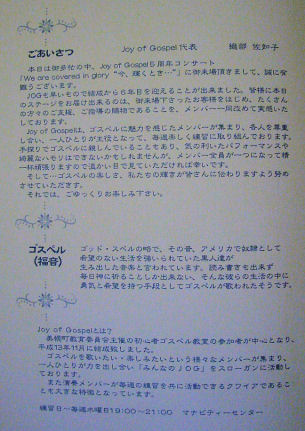 ごあいさつ
Joy of Gospel代表 織部 佐知子
本日は御多忙の中、Joy of Gospel5周年コンサート
「We are covered in glory "今、輝くとき…"」に御来場頂きまして、誠に有
難うございます。
JOGも早いもので結成から6年目を迎えることが出来ました。皆様に本日
のステージをお届け出来るのは、御来場下さったお客様をはじめ、たくさん
の方々のご支援、ご指導の賜物であることを、メンバー一同改めて実感いた
しております。
Joy of Gospelは、ゴスペルに魅力を感じたメンバーが集まり、各人を尊重
し合い、一人ひとりが主役となって、毎週楽しく練習に取り組んでおります。
手探りでゴスペルに親しんでいることもあり、気の利いたパフォーマンスや
綺麗なハモリはできないかもしれませんが、メンバー全員が一つになって精
一杯頑張りますので温かい目で見ていただければ幸いです。
そして…ゴスペルの楽しさ、私たちの輝きが皆さんに伝わりますよう努め
させていただきます。
それでは、ごゆっくりお楽しみ下さい。
ゴスペル
(福音)
ゴッド・スペルの略で、その昔、アメリカで奴隷として
希望のない生活を強いられていた黒人達が
生み出した音楽と言われています。読み書きも出来ず
毎日神に祈ることしか出来ない、そんな彼らの生活の中に
勇気と希望を持つ手段としてゴスペルが歌われたそうです。
Joy of Gospelとは?
美幌町教育委員会主催の初心者ゴスペル教室の参加者が中心となり、
平成13年11月に結成致しました。
ゴスペルを歌いたい・楽しみたいという様々なメンバーが集まり、
一人ひとりが力を出し合い「みんなのJOG」をスローガンに活動し
ております。
また演奏メンバーが毎週の練習を共に活動できるクワイアであるこ
とも大きな特徴となっています。
練習日～毎週木曜日19:00～21:00 マナビティーセンター